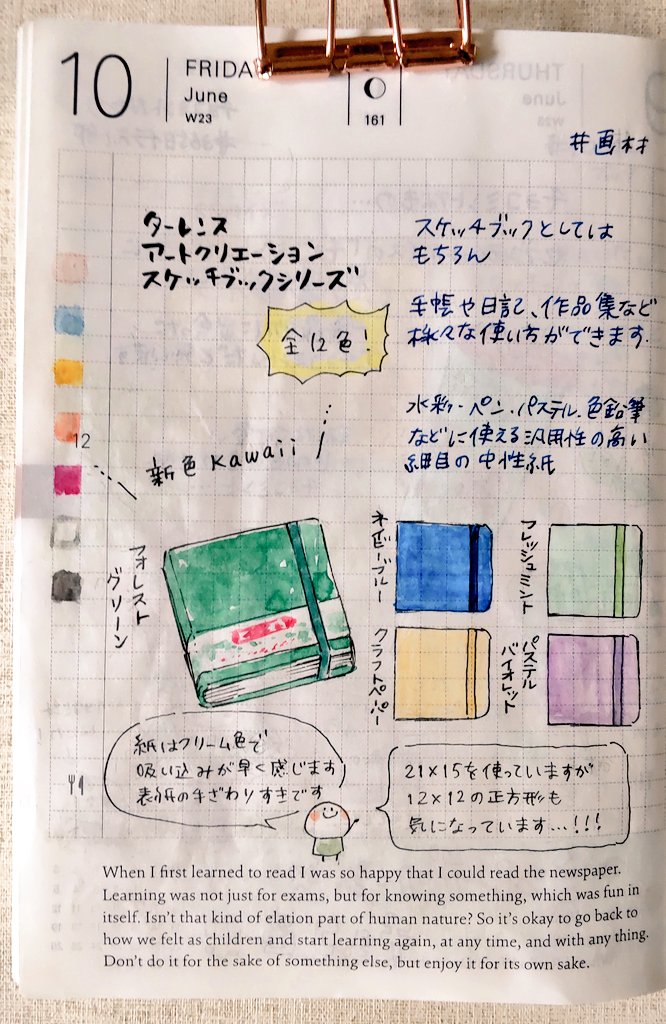 10
FRIDA
June
W23
161
#画材
ターレンス
アートクリエーション
スケッチブックシリーズ
全12色!
スケッチブックとしては
もちろん
手帳や日記、作品集など
様々な使い方ができます.
水彩・ペン・パステル・色鉛筆
などに使える汎用性の高い
細目の中性紙
12
新色 Kawaii
フォレスト
グリーン
ネイビーブルー
フレッシュミント
クラフトペーパー
パステル
バイオレット
紙はクリーム色で
吸い込みが早く感じます
表紙の手ざわりすきです
21×15を使っていますが
12×12の正方形も
気になっています…!!!
When I first learned to read I was so happy that I could read the newspaper.
Learning was not just for exams, but for knowing something, which was fun in
itself. Isn't that kind of elation part of human nature? So it's okay to go back to
how we felt as children and start learning again, at any time, and with any thing.
Don't do it for the sake of something else, but enjoy it for its own sake.